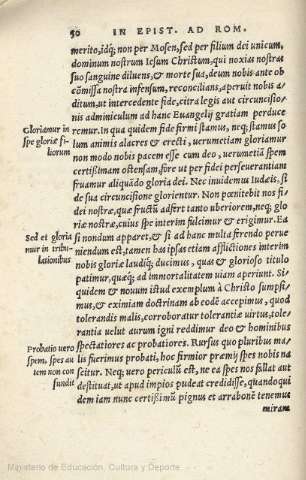 50 IN EPIST. AD ROM.
merito, idq́; non per Mosen, sed per filium dei unicum,
dominum nostrum Iesum Christum, qui noxias nostras
suo sanguine diluens, & morte sua, deum nobis ante ob
cõmissa nostra infensum, reconcilians, aperuit nobis a-
ditum, ut intercedente fide, citra legis aut circuncisio-
nis adminiculum ad hanc Euangelij gratiam perduce
Gloriamur in
spe gloriæ fi-
liorum
remur. In qua quidem fide firmi stamus, neq; stamus so
lum animis alacres & erecti, uerumetiam gloriamur
non modo nobis pacem esse cum deo, uerumetiã spem
certißimam ostensam, fore ut per fidei perseuerantiam
fruamur aliquãdo gloria dei. Nec inuidemus iudæis, si
de sua circuncisione glorientur. Non pœnitebit nos fi
dei nostræ, quæ fructũ adfert tanto uberiorem, neq; glo
riæ nostræ, cuius spe interim fulcimur & erigimur. Ea
Sed et gloria
mur in tribu-
lationibus
si nondum apparet, & si ad hanc multa ferendo perue
niendum est, tamen has ipsas etiam afflictiones interim
nobis gloriæ laudiq́; ducimus, quas & glorioso titulo
patimur, quæq́; ad immortalitatem uiam aperiunt. Si-
quidem & nouum istud exemplum à Christo sumpsi-
mus, & eximiam doctrinam ab eodẽ accepimus, quod
tolerandis malis, corroboratur tolerantiæ uirtus, tole-
rantia uelut aurum igni redditimur deo & hominibus
Probatio uero
spem, spes au
tem non con
fundit
spectatiores ac probatiores. Rursus quo pluribus ma-
lis fuerimus probati, hoc firmior præmij spes nobis na
scitur. Neq; uero periculũ est, ne ea spes nos fallat aut
destituat, ut apud impios pudeat credidisse, quando qui
dem iam nunc certißimũ pignus et arrabonẽ tenemus
miram
Ministerio de Educación, Cultura y Deporte